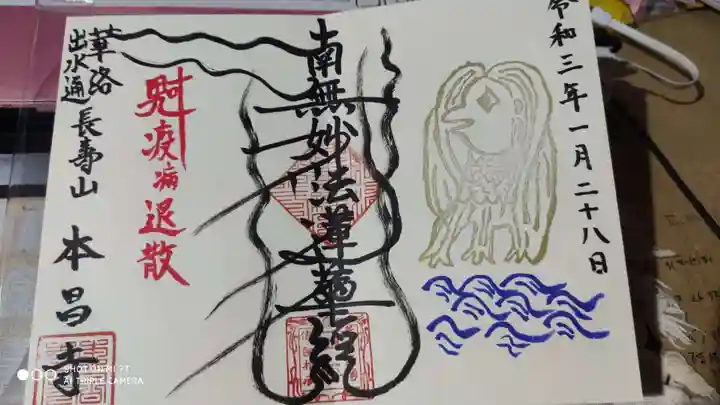 令和三年一月二十八日
南無妙法蓮華経
疫病退散
華洛
出水通
長壽山
本昌寺
SHOT ON MI 9T
AI TRIPLE CAMERA